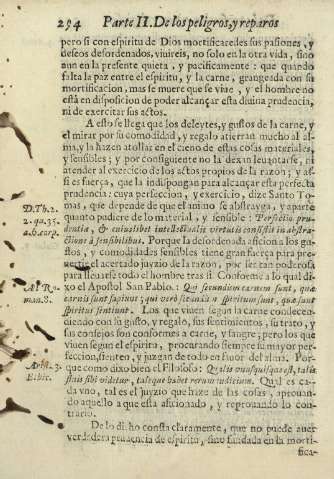 294 Parte II. De los peligros, y reparos
pero si con espiritu de Dios mortificaredes sus pasiones, y
deseos desordenados, viuireis, no solo en la otra vida, sino
aun en la presente quieta, y pacificamente: que quando
falta la paz entre el espiritu, y la carne, grangeada con su
mortificacion, mas se muere que se viue, y el hombre no
està en disposicion de poder alcançar esta diuina prudencia,
ni de exercitar sus actos.
A esto se llega que los deleytes, y gustos de la carne, y
el mirar por su comodidad, y regalo atierran mucho al al-
ma, y la hazen atollar en el cieno de estas cosas materiales,
y sensibles; y por consiguiente no la dexan leuantarse, ni
atender al exercicio de los actos propios de la razon; y as-
si es fuerça, que la indispongan para alcançar esta perfecta
prudencia: cuya perfeccion, y exercicio, dize Santo To-
D.Th.2. mas, que depende de que el animo se abstrayga, y aparte
2.qu.35. quanto pudiere de lo material, y sensible: Perfectio pru-
a.6.corp. dentiæ, & cuiuslibet intellectualis virtutis consistit in abstra-
ctione à sensibilibus. Porque la desordenada aficion a los gus-
tos, y comodidades sensibles tiene gran fuerça para pre-
uertir el acertado juyzio de la razon, por ser tan poderosa
para lleuarse todo el hombre tras si. Conforme a lo qual di-
Al Ro- xo el Apostol San Pablo: Qui secundum carnem sunt, quæ
man.8. carnis sunt sapiunt; qui verò secundùm spiritum sunt, quæ sunt
spiritus sentiunt. Los que viuen segun la carne condecen-
diendo con su gusto, y regalo, sus sentimientos, su trato, y
sus consejos son conformes a carne, y sangre; pero los que
viuen segun el espiritu, procurando siempre su mayor per-
feccion, sienten, y juzgan de todo en fauor del alma. Por-
Arist.3. que como dixo bien el Filosofo: Qualis unusquisque est, talis
Ethic. finis ibi videtur, talesque habet rerum iudicium. Qual es ca-
da vno, tal es el juyzio que haze de las cosas, aprouan-
do aquello a que està aficionado, y reprouando lo con-
trario.
De lo dicho consta claramente, que no puede auer
verdadera prudencia de espiritu, sino fundada en la morti-
fica-